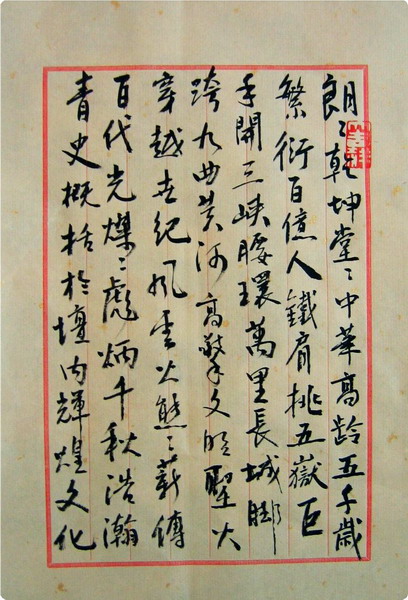 朗々乾坤堂々中華高齡五千歲
繁衍百億人鐵肩挑五嶽巨
手開三峽腰環萬里長城脚
跨九曲黄河高擎文明聖火
穿越世紀風雲火熊々薪傳
百代光燦々彪炳千秋浩瀚
青史概括於壇內輝煌文化